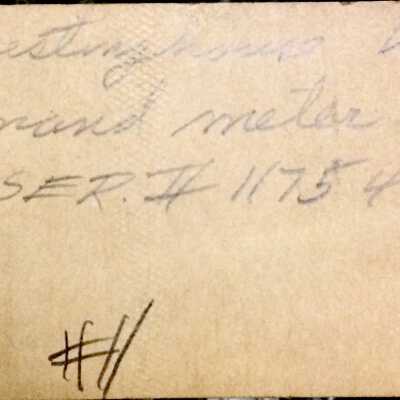 estinghouse
mand meter
SER. # 11754
#11